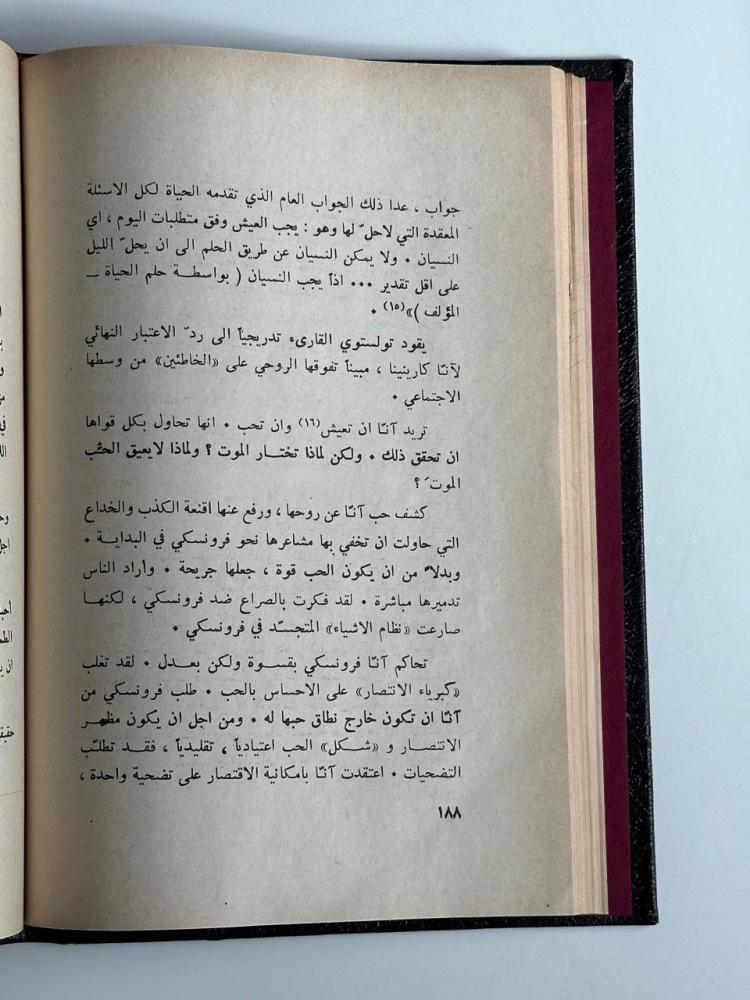 جواب ، عدا ذلك الجواب العام الذي تقدمه الحياة لكل الاسئلة
المعقدة التي لاحلّ لها وهو : يجب العيش وفق متطلبات اليوم ، اي
النسيان ٠ ولا يمكن النسيان عن طريق الحلم الى ان يحلّ الليل
على اقل تقدير ٠٠٠ اذاً يجب النسيان ( بواسطة حلم الحياة ــ
المؤلف )»(١٥) ٠
يقود تولستوي القارىء تدريجياً الى ردّ الاعتبار النهائي
لآنّا كارينينا ، مبيناً تفوقها الروحي على «الخاطئين» من وسطها
الاجتماعي ٠
تريد آنّا ان تعيش(١٦) وان تحب ٠ انها تحاول بكل قواها
ان تحقق ذلك ٠ ولكن لماذا تختار الموت ؟ ولماذا لايعيق الحبُّ
الموتَ ؟
كشف حب آنّا عن روحها ، ورفع عنها اقنعة الكذب والخداع
التي حاولت ان تخفي بها مشاعرها نحو فرونسكي في البداية ٠
وبدلاً من ان يكون الحب قوة ، جعلها جريحة ٠ وأراد الناس
تدميرها مباشرة ٠ لقد فكرت بالصراع ضد فرونسكي ، لكنها
صارعت «نظام الاشياء» المتجسّد في فرونسكي ٠
تحاكم آنّا فرونسكي بقسوة ولكن بعدل ٠ لقد تغلب
«كبرياء الانتصار» على الاحساس بالحب ٠ طلب فرونسكي من
آنّا ان تكون خارج نطاق حبها له ٠ ومن اجل ان يكون مظهر
الانتصار و «شكل» الحب اعتيادياً ، تقليدياً ، فقد تطلّب
التضحيات ٠ اعتقدت آنّا بامكانية الاقتصار على تضحية واحدة ،
١٨٨